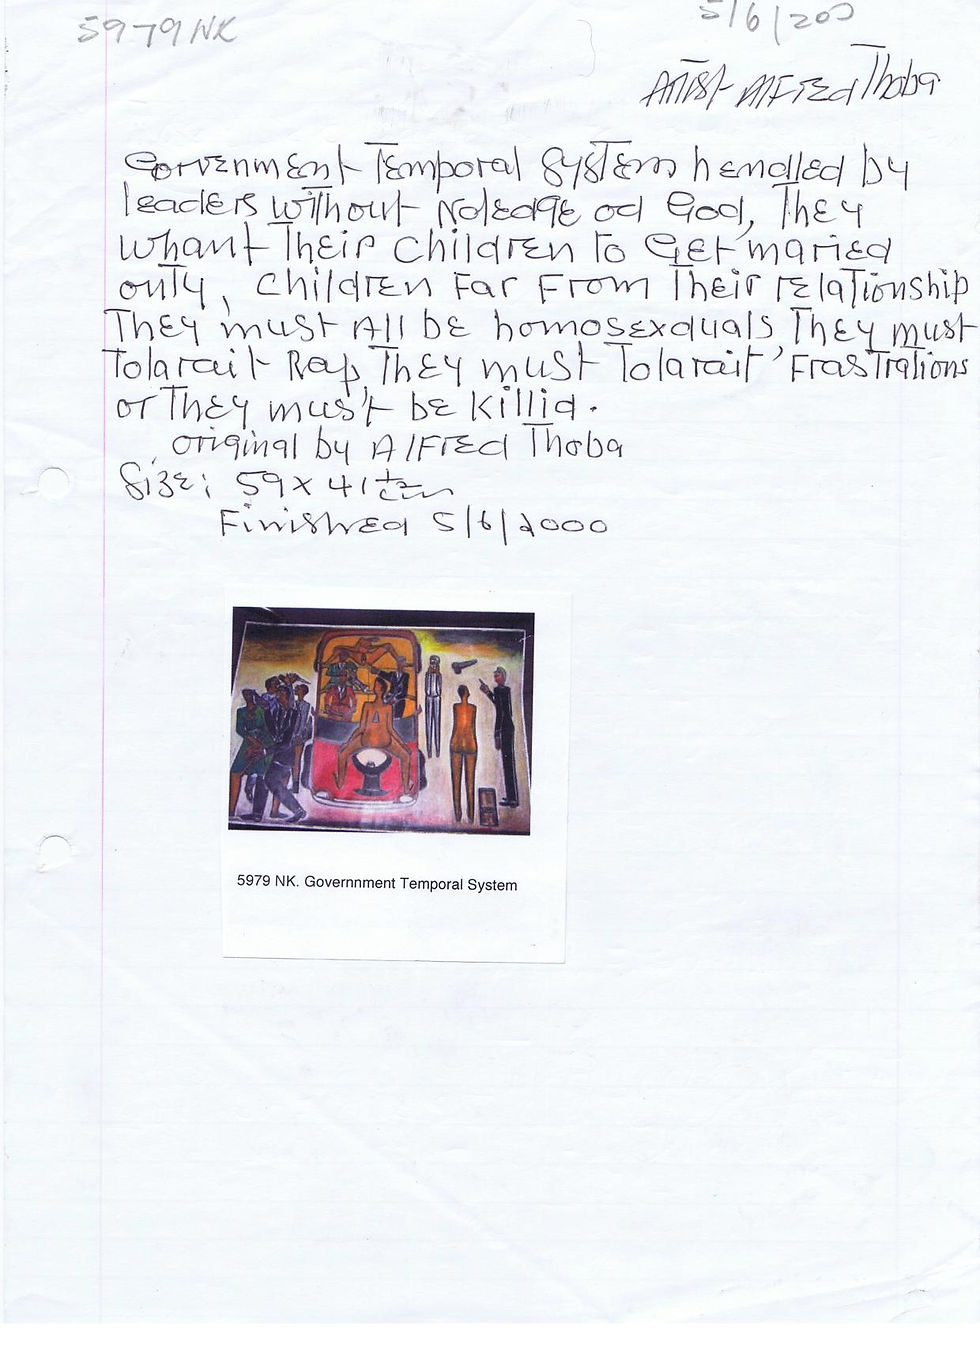 5979 NK
5/6/200
Artist Alfred Thoba
Gorvenment Temporal Systems hendled by
leaders without Noledge od God, They
whant Their Children to Get maried
only, Children Far From Their relationship
They must All be homosexduals They must
Tolarait Rap, They must Tolarait 'Frastrations
or They must be Killid.
original by Alfred Thoba
Size: 59 x 41 cm
Finished 5/6/2000
5979 NK. Governnment Temporal System